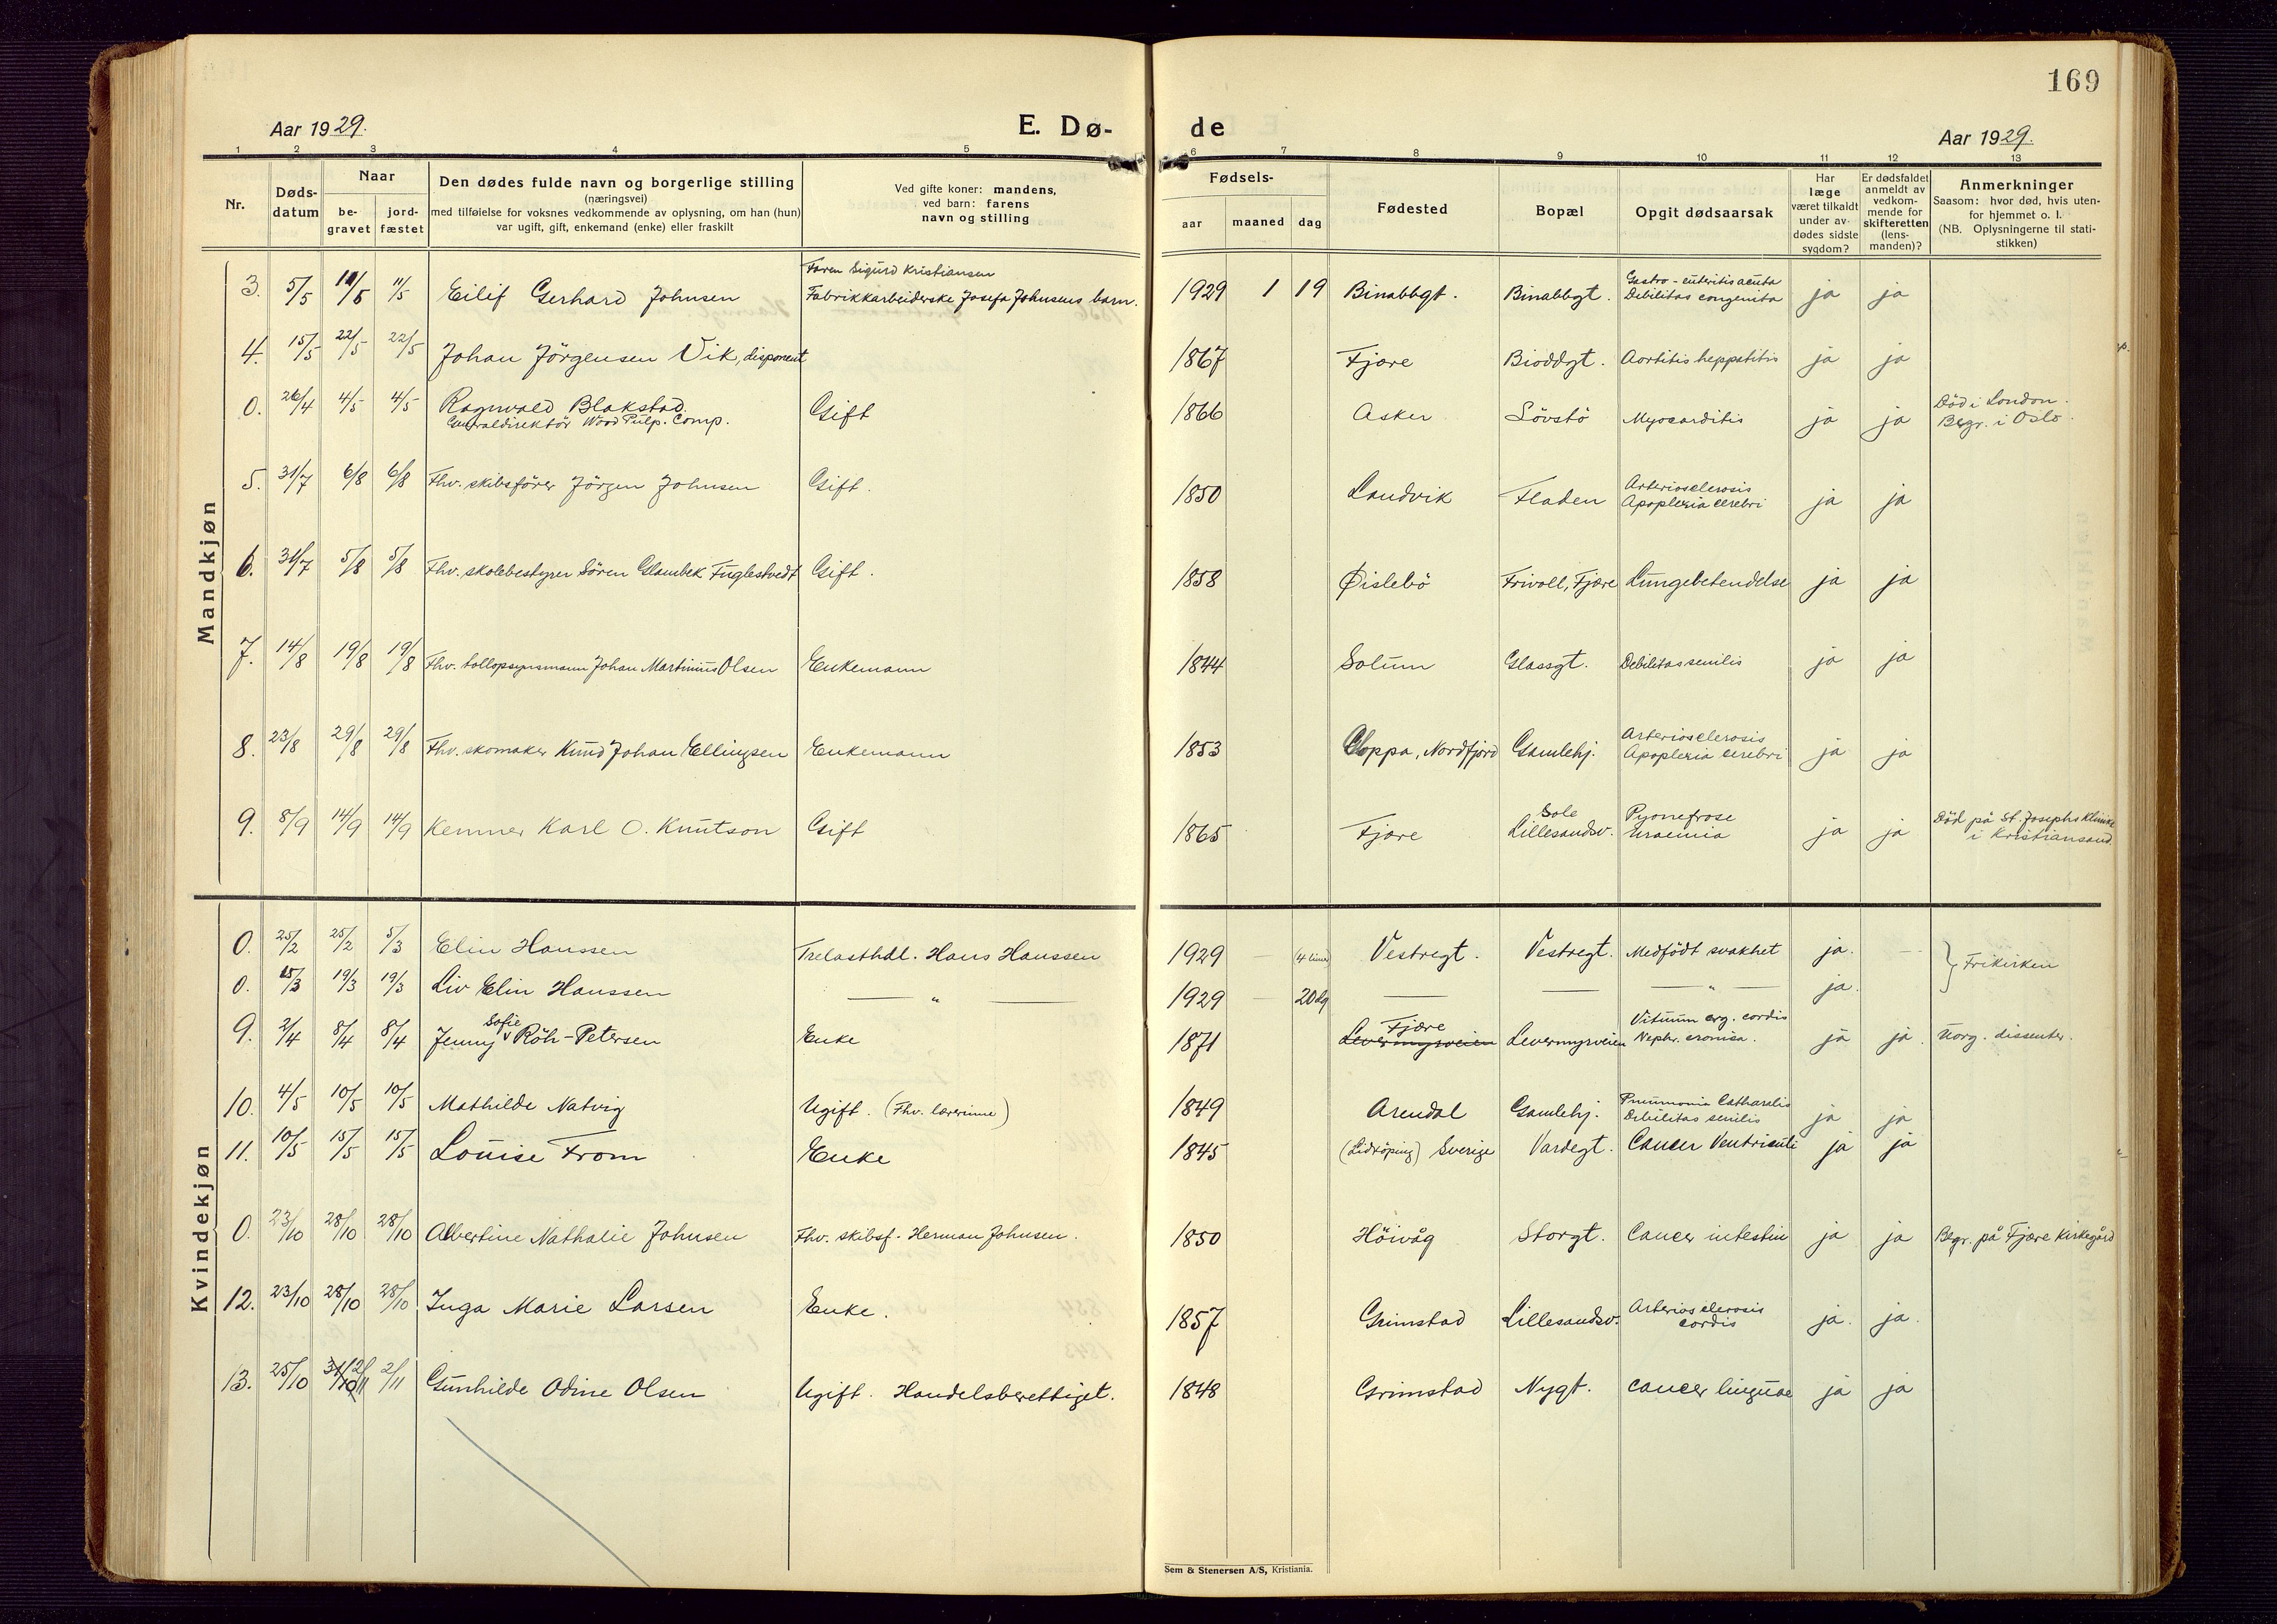 169
Aar 1929.
E. Dø- de
Aar 1929.
1 2 3 4 5 6 7 8 9 10 11 12 13
Nr.
Døds-
datum
Naar
be-
gravet
jord-
fæstet
Den dødes fulde navn og borgerlige stilling
(næringsvei)
med tilføielse for voksnes vedkommende av oplysning, om han (hun)
var ugift, gift, enkemand (enke) eller fraskilt
Ved gifte koner: mandens,
ved barn: farens
navn og stilling
Fødsels-
aar maaned dag
Fødested
Bopæl
Opgit dødsaarsak
Har
læge
været tilkaldt
under av-
dødes sidste
sygdom?
Er dødsfaldet
anmeldt av
vedkom-
mende for
skifteretten
(lens-
manden)?
Anmerkninger
Saasom: hvor død, hvis uten-
for hjemmet o. l.
(NB. Oplysningerne til stati-
stikken)
Mandkjøn
Faren Sigurd Kristiansen Gastro-enteritis acuta
3. 5/5 11/5 11/5 Eilif Gerhard Johnsen Fabrikkarbeiderske Josefa Johnsens barn. 1929 1 19 Binabbgt. Binabbgt. Debilitas congenita ja ja
4. 15/5 22/5 22/5 Johan Jörgensen Vik, disponent 1867 Fjære Bioddgt. Aortitis heppatitis ja ja
0. 26/4 4/5 4/5 Ragnvald Blakstad. Gift 1866 Asker Lövstö Myocarditis ja ja Död i London.
Generaldirektör Wood Pulp. Comp. Begr. i Oslo.
5. 31/7 6/8 6/8 Fhv. skibsförer Jörgen Johnsen Gift. 1850 Landvik Fladen Arteriosclerosis ja ja
Apoplexia cerebri
6. 31/7 5/8 5/8 Fhv. skolebestyrer Sören Glambek Fuglestvedt Gift. 1858 Øislebö Frivoll, Fjære Lungebetendelse ja ja
7. 14/8 19/8 19/8 Fhv. tollopsynsmann Johan Martinius Olsen Enkemann 1844 Solum Glassgt. Debilitas senilis ja ja
8. 23/8 29/8 29/8 Fhv. skomaker Knud Johan Ellingsen Enkemann 1853 Gloppa, Nordfjord Gamlehj. Arteriosclerosis ja ja
Apoplexia cerebri
9. 8/9 14/9 14/9 Kemner Karl O. Knutson Gift 1865 Fjære Sole Pyonefrose ja ja Död på St. Josephs Klinikk
Lillesandsv. Uraemia i Kristiansand.
Kvindekjøn
0. 25/2 25/2 5/3 Elin Hanssen Trelasthdl. Hans Hanssen 1929 — (4 timer) Vestregt. Vestregt. Medfödt svakhet ja. — } Frikirken
0. 15/3 19/3 19/3 Liv Elin Hanssen — " — 1929 — 20 dg — — — " — ja.
9. 2/4 8/4 8/4 Jenny Sofie Röh-Petersen Enke 1871 Fjære Levermyrveien Levermyrveien Vitium org. cordis ja ja. Uorg. dissenter.
Nephr. cronica.
10. 4/5 10/5 10/5 Mathilde Natvig Ugift. (Fhv. lærerinne) 1849 Arendal Gamlehj. Pneumonia Catharalis ja ja
Debilitas senilis
11. 10/5 15/5 15/5 Louise From Enke 1845 (Lidköping) Sverige Vardegt. Cancer Ventriculi ja ja
0. 23/10 28/10 28/10 Albertine Nathalie Johnsen Fhv. skibsf. Herman Johnsen. 1850 Höivåg Storgt. Cancer intestin ja ja Begr. på Fjære Kirkegård
12. 23/10 28/10 28/10 Inga Marie Larsen Enke. 1857 Grimstad Lillesandsv. Arteriosclerosis ja. ja.
cordis
13. 25/10 31/10 2/11 2/11 Gunhilde Odine Olsen Ugift. Handelsberettiget. 1848 Grimstad Nygt. Cancer linguae ja ja
Sem & Stenersen A/S, Kristiania.